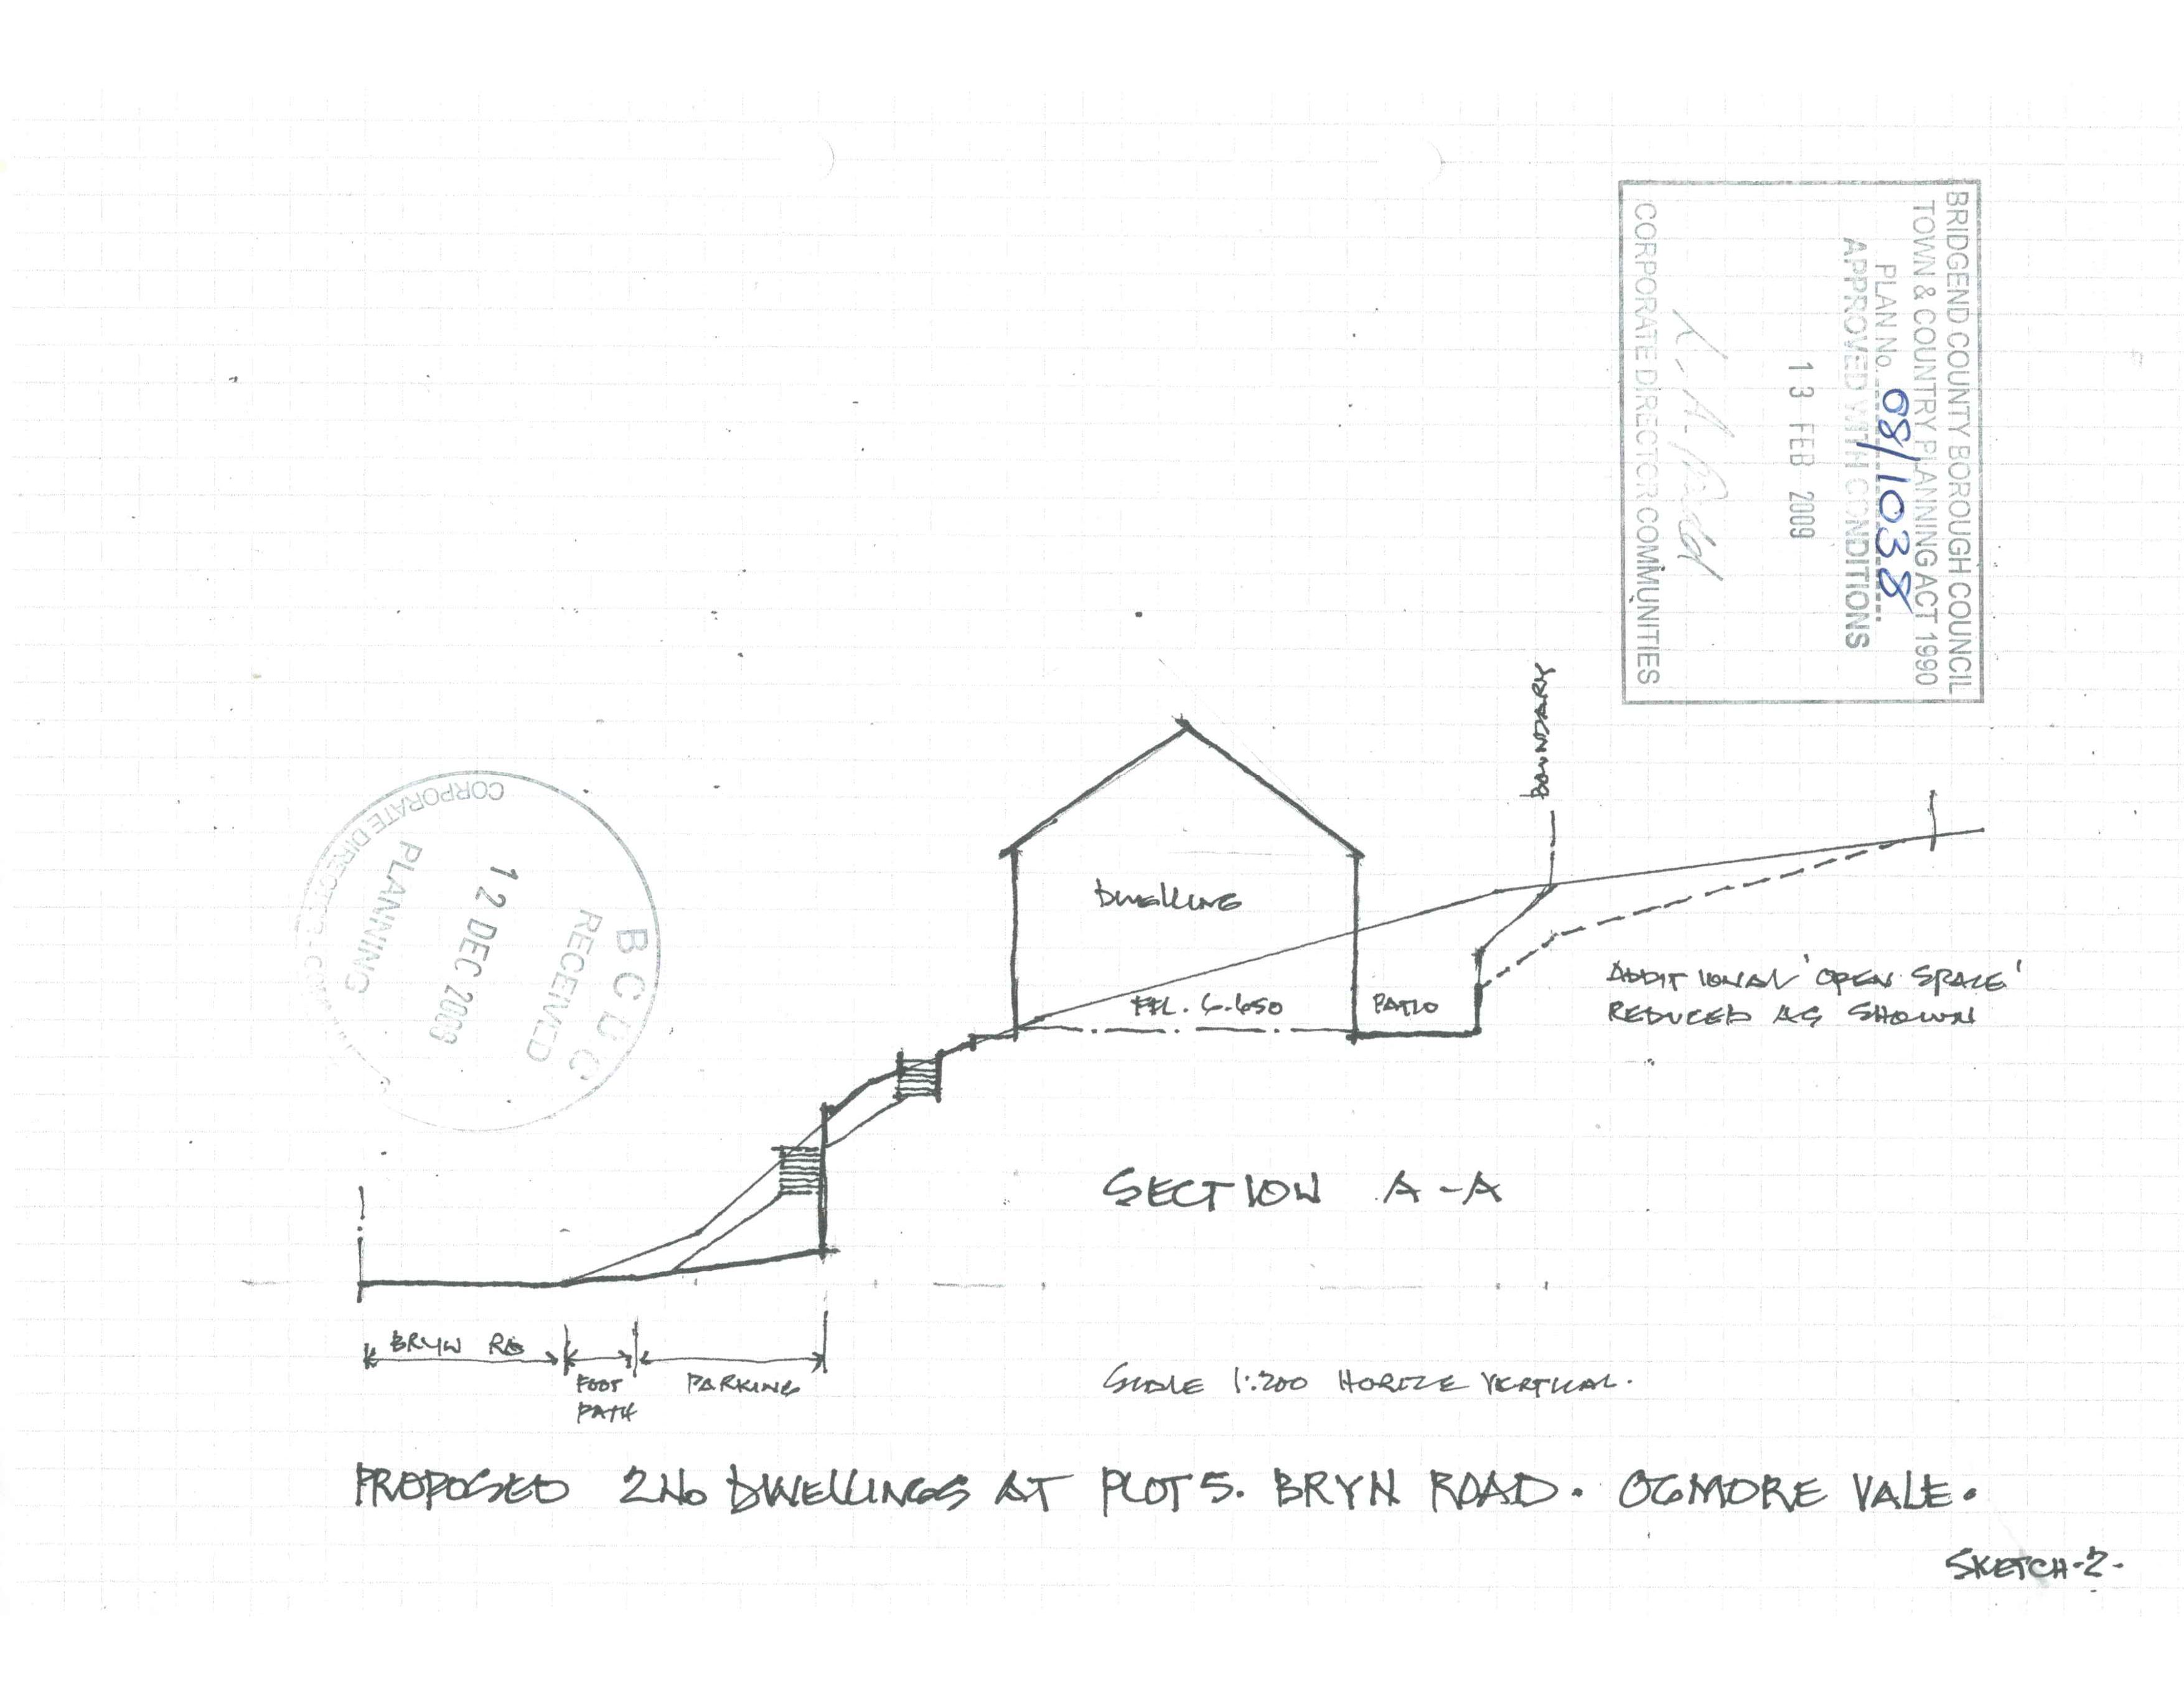 BRIDGEND COUNTY BOROUGH COUNCIL
TOWN & COUNTRY PLANNING ACT 1990
PLAN No. 08/1038
APPROVED WITH CONDITIONS
13 FEB 2009
CORPORATE DIRECTOR COMMUNITIES
BOUNDARY
BCBC
RECEIVED
12 DEC 2008
PLANNING
CORPORATE DIRECTOR
DWELLING
FFL. 6.650
PATIO
ADDITIONAL 'OPEN SPACE'
REDUCED AS SHOWN
SECTION A-A
BRYN RD
FOOT
PATH
PARKING
SCALE 1:200 HORIZ & VERTICAL.
PROPOSED 2No DWELLINGS AT PLOT 5. BRYN ROAD. OGMORE VALE.
SKETCH-2-